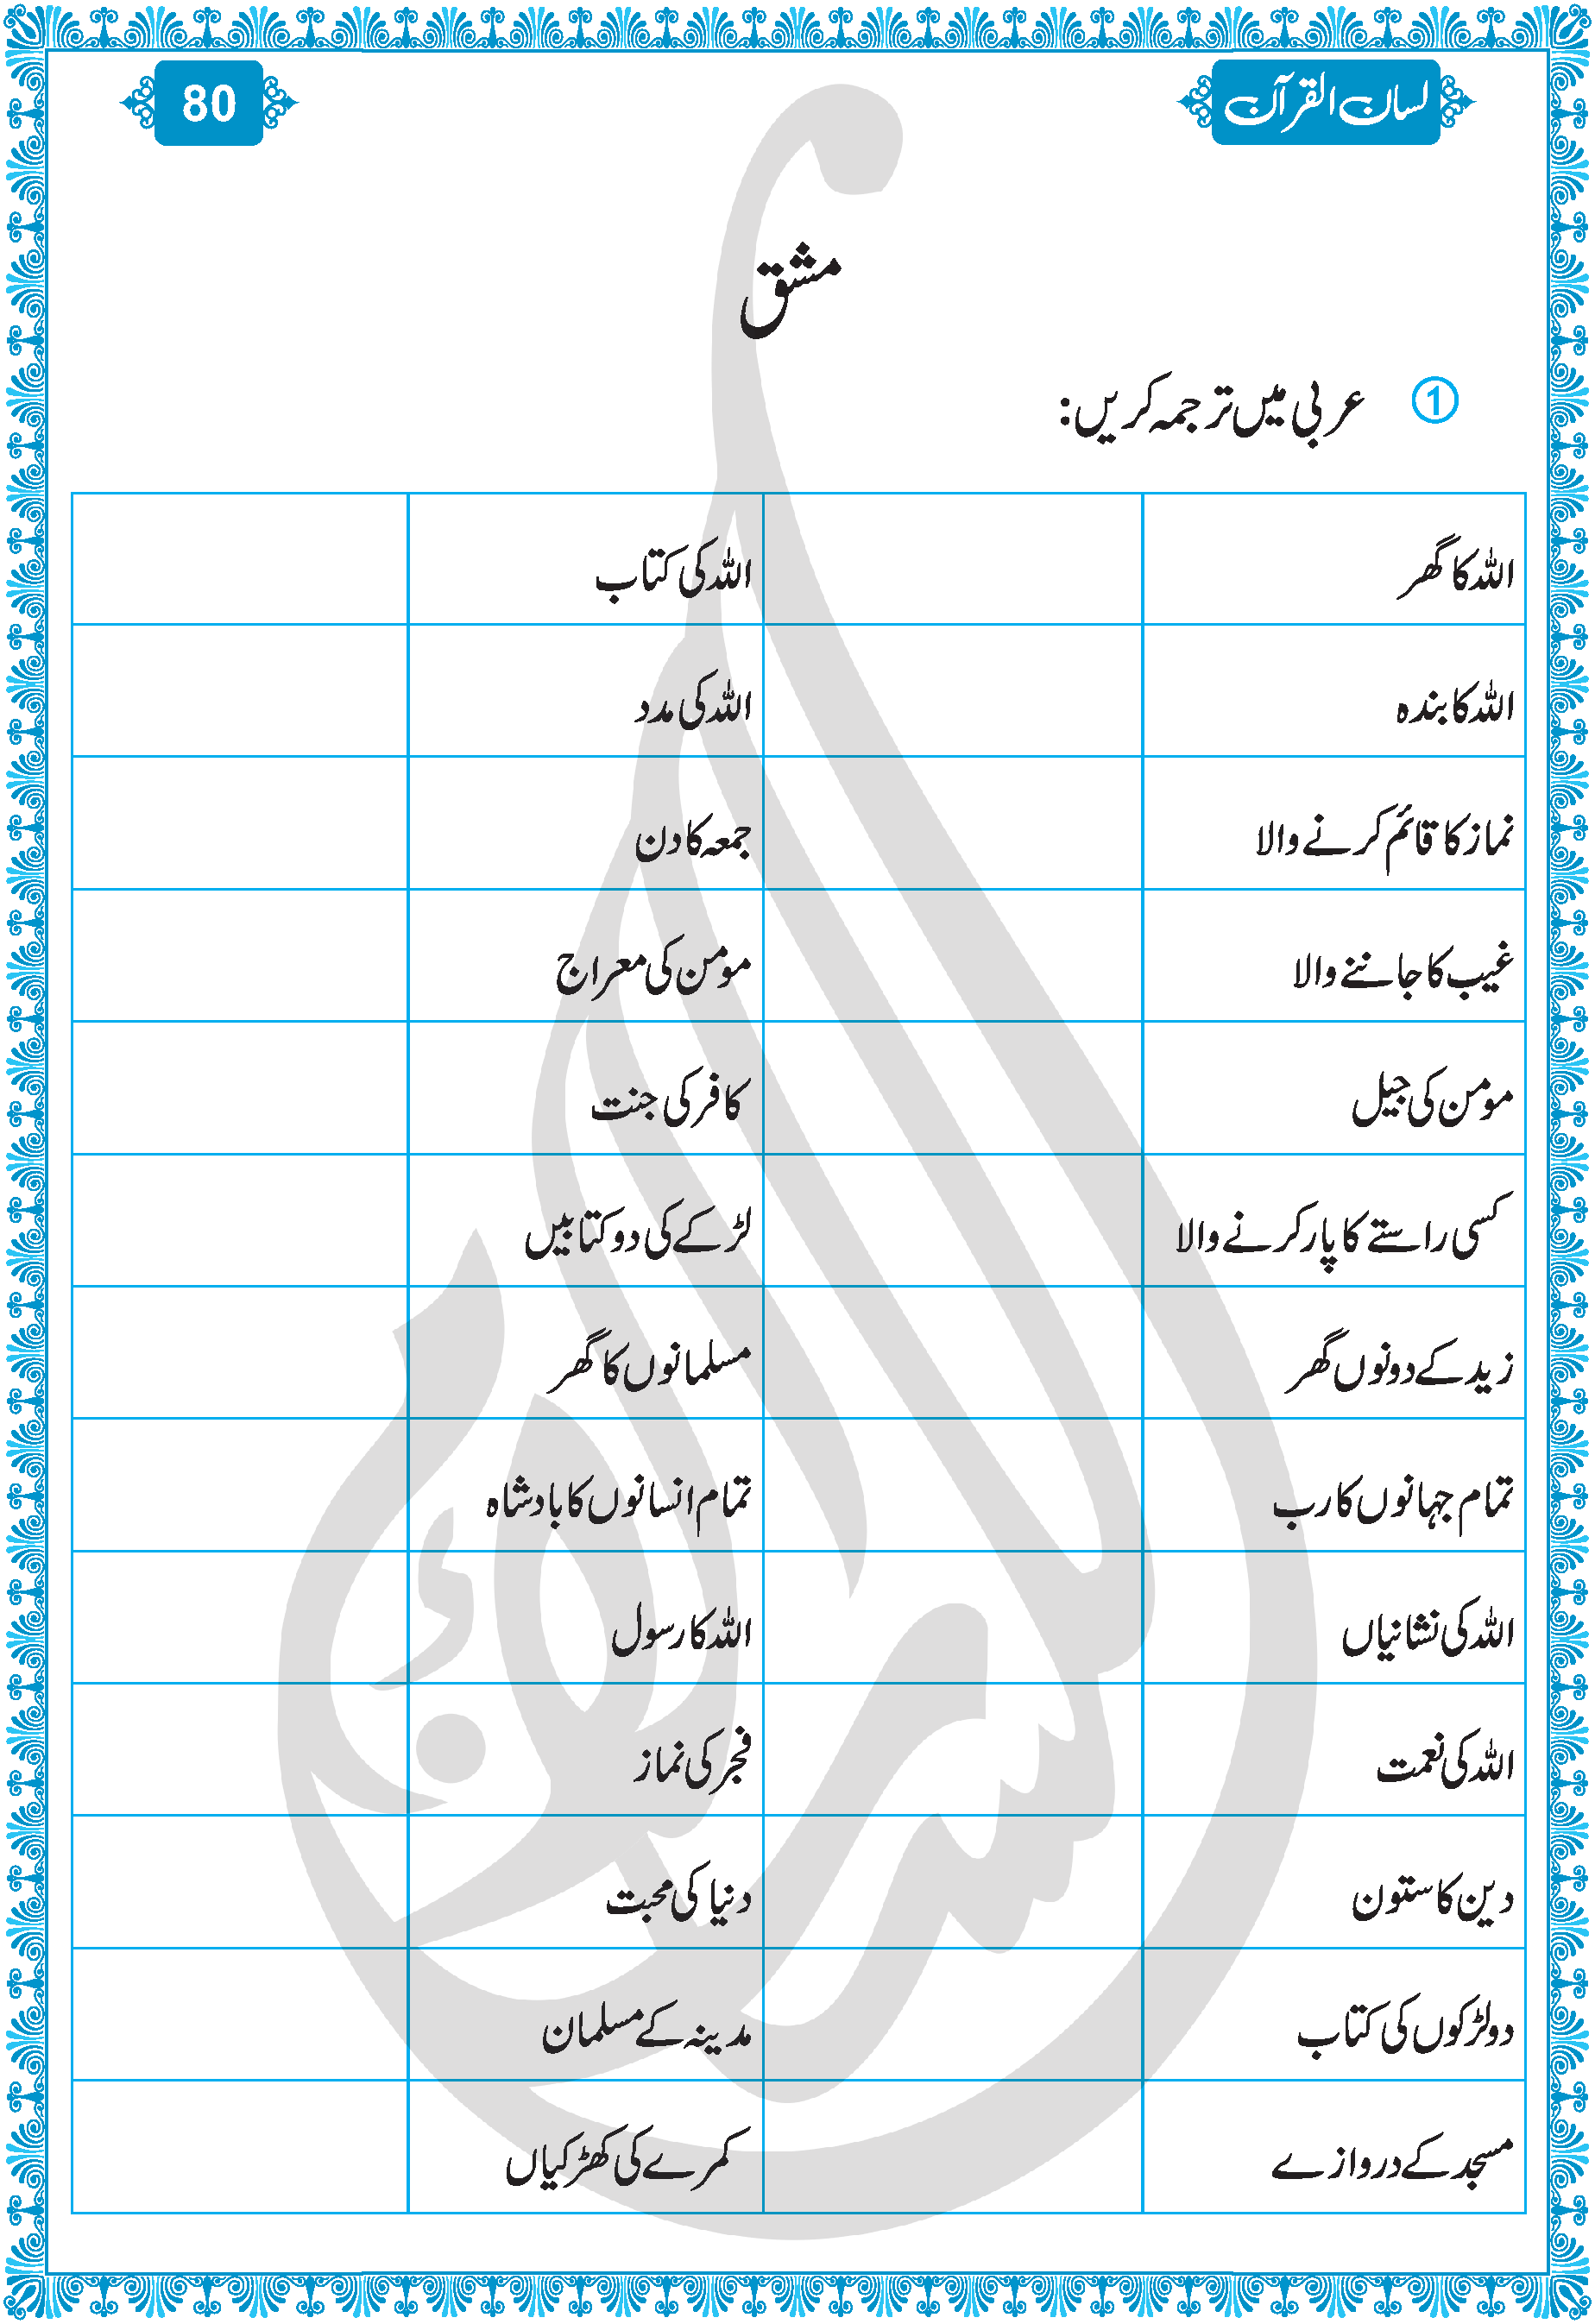 لسان القرآن
80
مشق
1 عربی میں ترجمہ کریں:
اللہ کا گھر
اللہ کی کتاب
اللہ کا بندہ
اللہ کی مدد
نماز کا قائم کرنے والا
جمعہ کا دن
غیب کا جاننے والا
مومن کی معراج
مومن کی جیل
کافر کی جنت
کسی راستے کا پار کرنے والا
لڑکے کی دو کتابیں
زید کے دونوں گھر
مسلمانوں کا گھر
تمام جہانوں کا رب
تمام انسانوں کا بادشاہ
اللہ کی نشانیاں
اللہ کا رسول
اللہ کی نعمت
فجر کی نماز
دین کا ستون
دنیا کی محبت
دو لڑکوں کی کتاب
مدینہ کے مسلمان
مسجد کے دروازے
کمرے کی کھڑکیاں